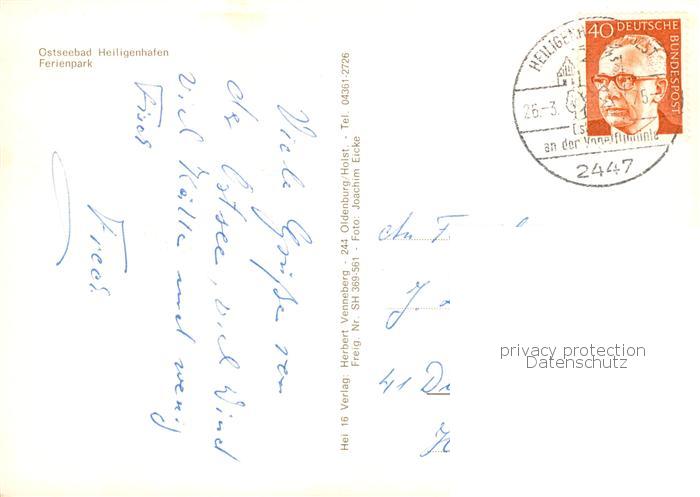 Ostseebad Heiligenhafen
Ferienpark
Viele Grüße von
der Ostsee, viel Wind
viel Kälte und wenig
Fisch
Fred.
Hei 16 Verlag: Herbert Venneberg - 244 Oldenburg/Holst. - Tel. 04361-2726
Freig. Nr. SH 369-561 - Foto: Joachim Eicke
40 DEUTSCHE
BUNDESPOST
HEILIGENH
26.-3.
an der Vogelfluglinie
2447
An F
J.
41 Du
privacy protection
Datenschutz